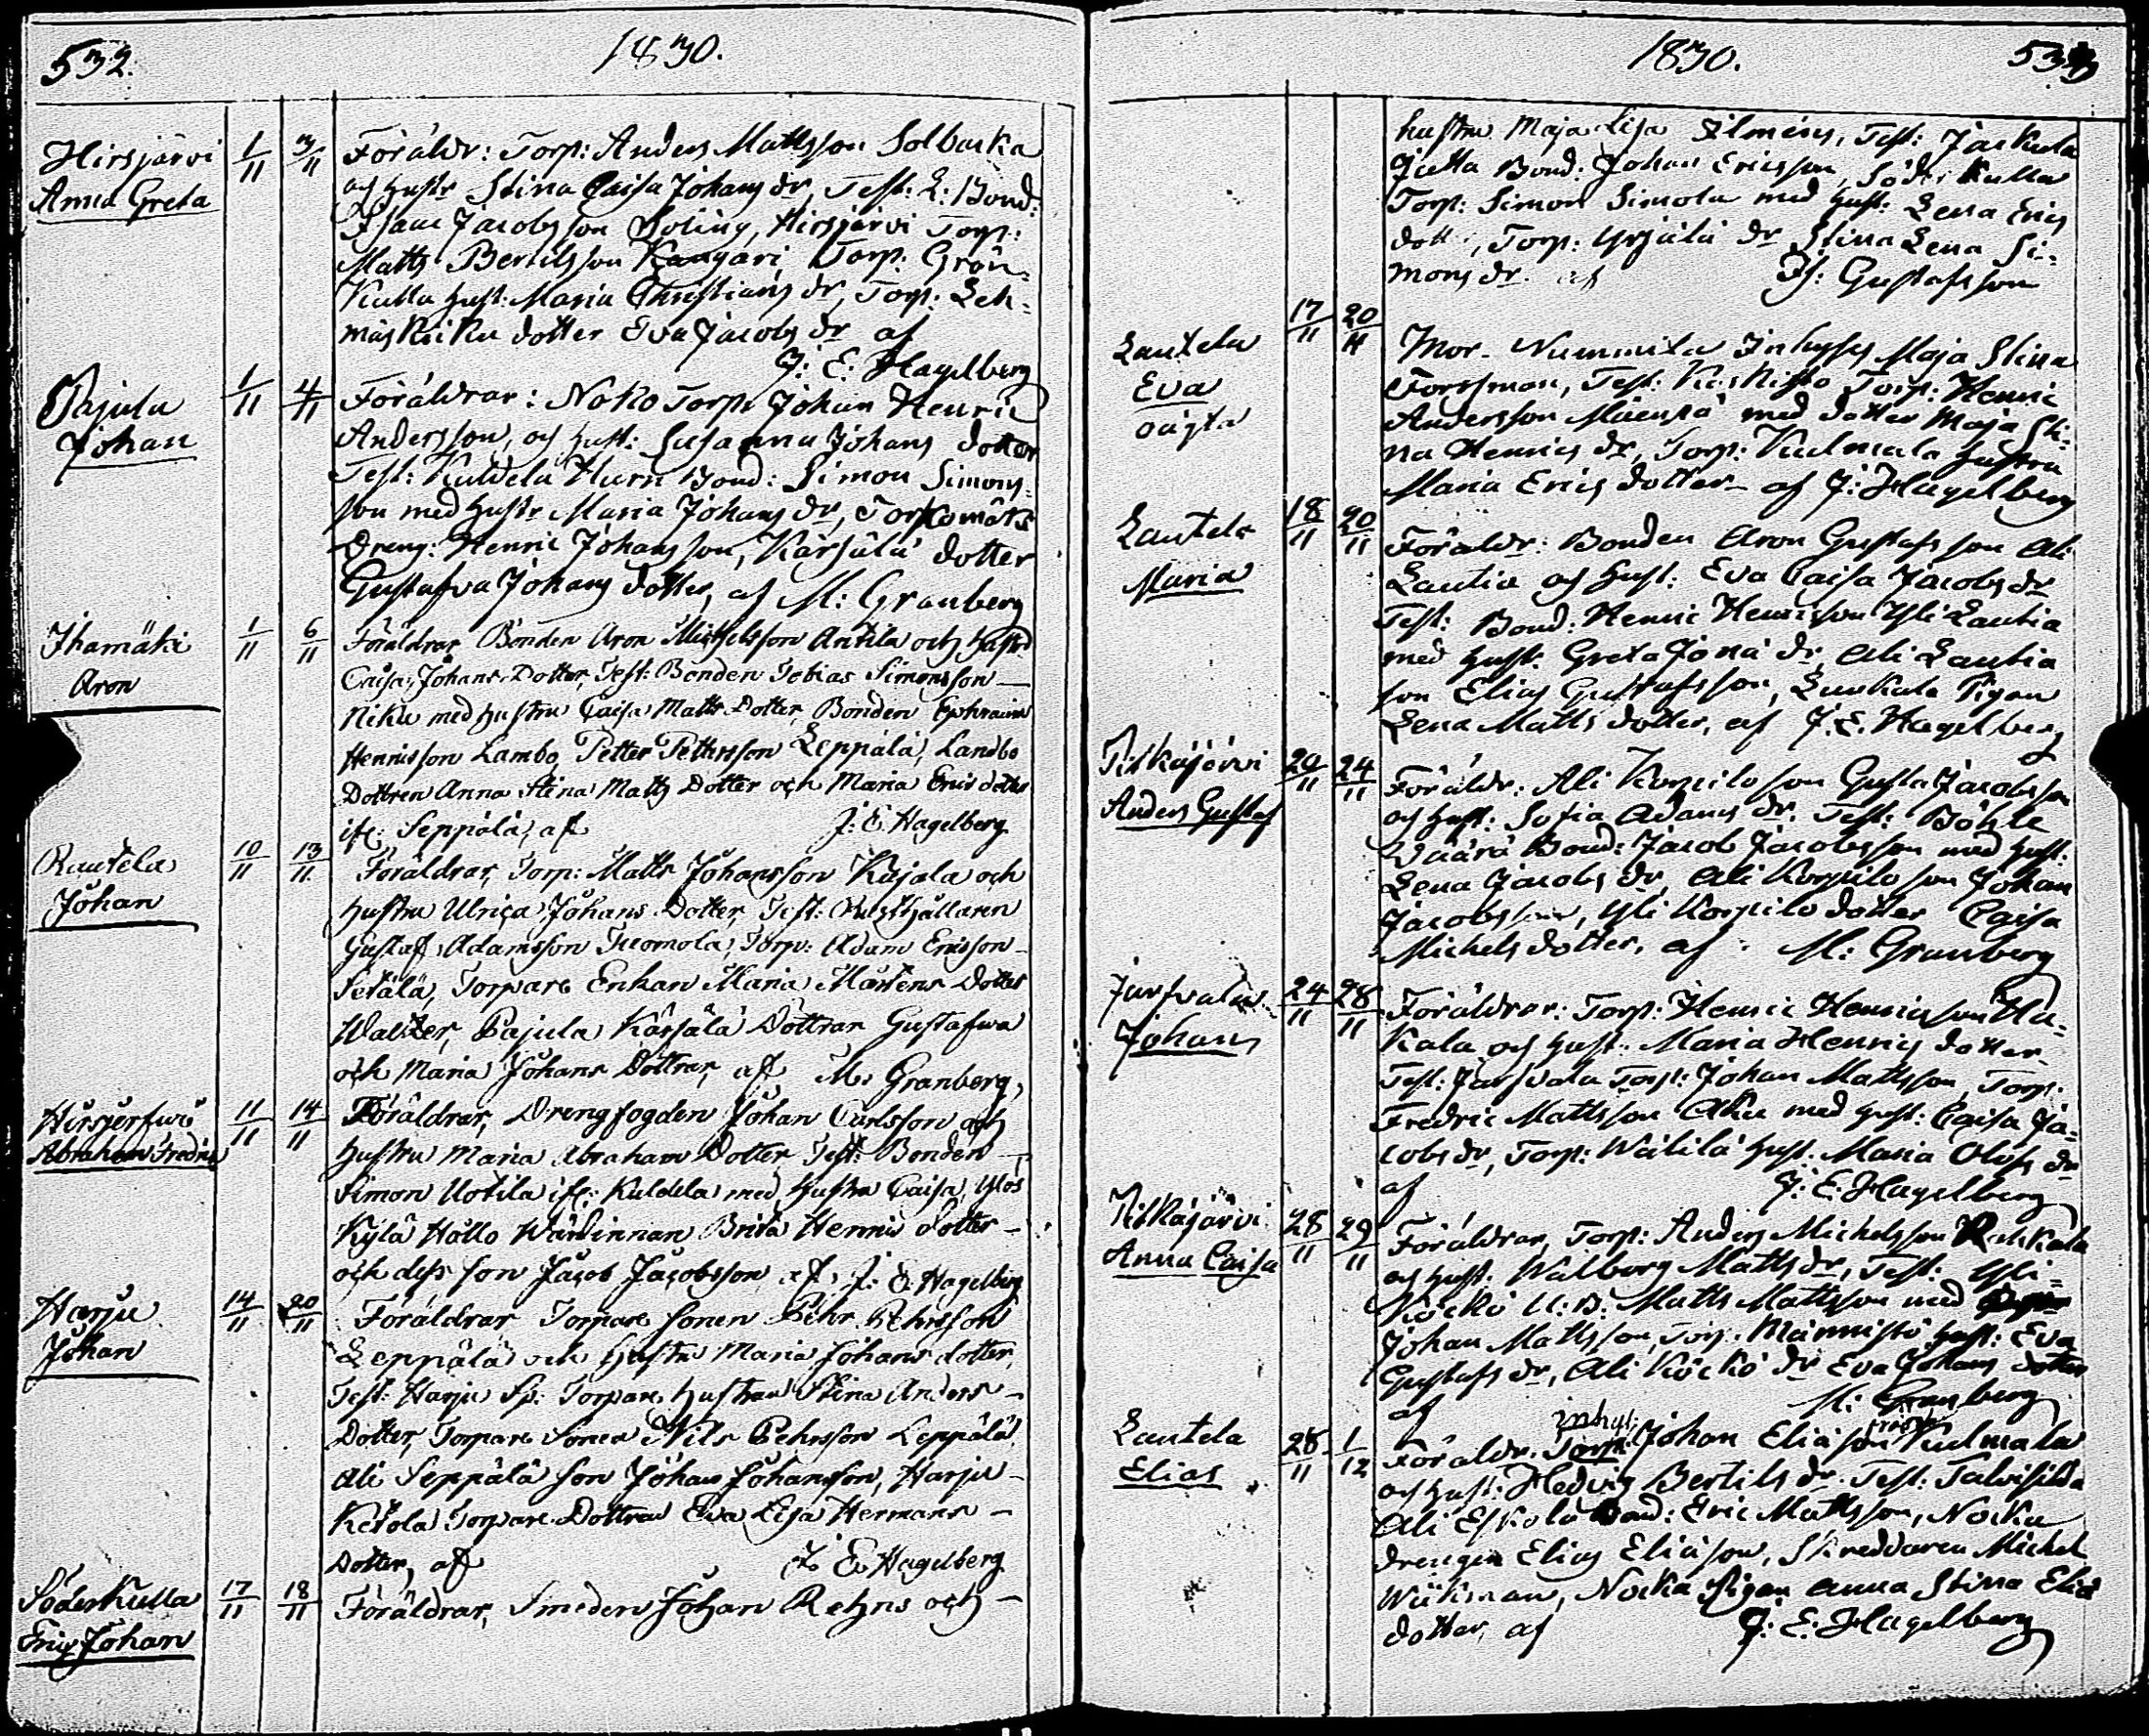 532.
1830.
Hirsjärvi
Anna Greta
1/11 3/11
Föräldr: Torp: Anders Mattsson Solbacka
och Hustr Stina Caisa Johans dr, Test: L: Bond:
Isaac Jacobsson Soling, Hirsjärvi Torp:
Matts Bertilsson Kangari, Torp: Grön-
Kulla Hust: Maria Christians dr, Torp: Leh-
mäskiku dotter Eva Jacobs dr af
J: E: Hagelberg
Pajula
Johan
1/11 4/11
Föräldrar: Noko Torp: Johan Henric
Andersson, och Hust: Susanna Johans dotter
Test: Kuldela Hurri Bond: Simon Simons-
son med Hustr Maria Johans dr,
Dreng: Henric Johansson, Kärsälä dotter
Gustafva Johans dotter, af M: Granberg
Ihamäki
Aron
1/11 6/11
Föräldrar Bonden Aron Michelsson Antila och Hustr
Caisa Johans Dotter, Test: Bonden Tobias Simonsson
Niku med Hustru Caisa Matts Dotter, Bonden Ephraim
Henricsson Lambo, Petter Pettersson Leppälä, Landbo
Dottren Anna Stina Matts Dotter och Maria Erics dotter
ifr: Seppälä, af J: E. Hagelberg
Rautela
Johan
10/11 13/11
Föräldrar, Torp: Matts Johansson Kujala och
Hustru Ulrica Johans Dotter, Test: Rusthållaren
Gustaf Adamsson Tuomola, Torp: Adam Ericsson
Setälä, Torpare Enkan Maria Mårtens Dotter
Walter, Pajula Kärsälä Döttrar Gustafwa
och Maria Johans Döttrar, af M: Granberg,
Hirsjerfwi
Abraham Fredric
11/11 14/11
Föräldrar, Drengfogden Johan Carlsson och
Hustru Maria Abraham Dotter, Test: Bonden
Simon Uotila ifr: Kuldela med Hustru Caisa, Ylös
Kylä Hollo Wärdinnan Brita Henrics dotter
och dess son Jacob Jacobsson af, J: E Hagelberg
Harju
Johan
14/11 20/11
Föräldrar Torpare sonen Pehr Pehrsson
Leppälä och Hustru Maria Johans dotter,
Test: Harju Sp: Torpare Hustrun Stina Anders
Dotter, Torpare Sonen Nils Pehrsson Leppälä
Ali Seppälä son Johan Johansson, Harju
Ketola Torpare Dottren Eva Lisa Hermans
Dotter, af J. E. Hagelberg
SöderKulla
Eric Johan
17/11 18/11
Föräldrar, Smeden Johan Rehns och
1830.
533
hustru Maja Lisa Ilmeins, Test: Jackula
Jutta Bond: Johan Ericsson, Söder Kulla
Torp: Simon Simola med Hust: Lena Erics
dott:, Torp: Yrjälä dr Stina Lena Si-
mons dr. af Is: Gustafsson
Lautela
Eva
oägta
17/11 20/11
Mor- Nummila Inhyses Maja Stina
Forssman, Test: Koskisto Torp: Henric
Andersson Mäenpä med dotter Maja Sti-
na Henrics dr, Torp: Kulmala Hustru
Maria Erics dotter- af J: Hagelberg
Lautela
Maria
18/11 20/11
Föräldr: Bonden Aron Gustafsson Ali
Lautia och Hust: Eva Caisa Jacobs dr
Test: Bond: Henric Henricsson Yli Lautia
med Hust: Greta Jona dr, Ali Lautia
son Elias Gustafsson, Luukala Pigan
Lena Matts dotter, af J. E. Hagelberg
Pitkäjärvi
Anders Gustaf
20/11 24/11
Föräldr: Ali Korpilo son Gusta Jacobsson
och Hust: Sofia Adams dr. Test: Böhle
Wäärä Bond: Jacob Jacobsson med Hust:
Lena Jacobs dr, Ali Korpilo son Johan
Jacobsson, Yli Korpilo dotter Caisa
Michels dotter, af M: Granberg
Jarfvala
Johan
24/11 28/11
Föräldrar: Torp: Henric Henricsson Ha-
Kala och Hust. Maria Henrics dotter-
Test: Jarfvala Torp: Johan Mattsson, Torp:
Fredric Mattsson Aku med Hust: Caisa Ja-
cobs dr, Torp: Wälilä Hust. Maria Olofs dr
af J: E: Hagelberg
Pitkäjärvi
Anna Caisa
28/11 29/11
Föräldrar, Torp: Anders Michelsson Rahkala
och Hust. Walborg Matts dr, Test: Yli-
Köckö U: B: Matts Mattsson med
Johan Mattsson, Torp. Männistö Hust: Eva
Gustafs dr, Ali Köckö dr Eva Johans dotter
af M: Granberg
Lautela
Elias
28/11 1/12
inhys:
Föräldr. Torp: Johan Eliäson Kulmala
och Hust: Hedvig Bertils dr. Test: Talvisilda
Ali Eskola Bond: Eric Mattsson, Nocka
drengen Elias Eliäson, Skreddaren Michel
Wickman, Nocka Pigan Anna Stina Eliä
dotter, af J: E: Hagelberg